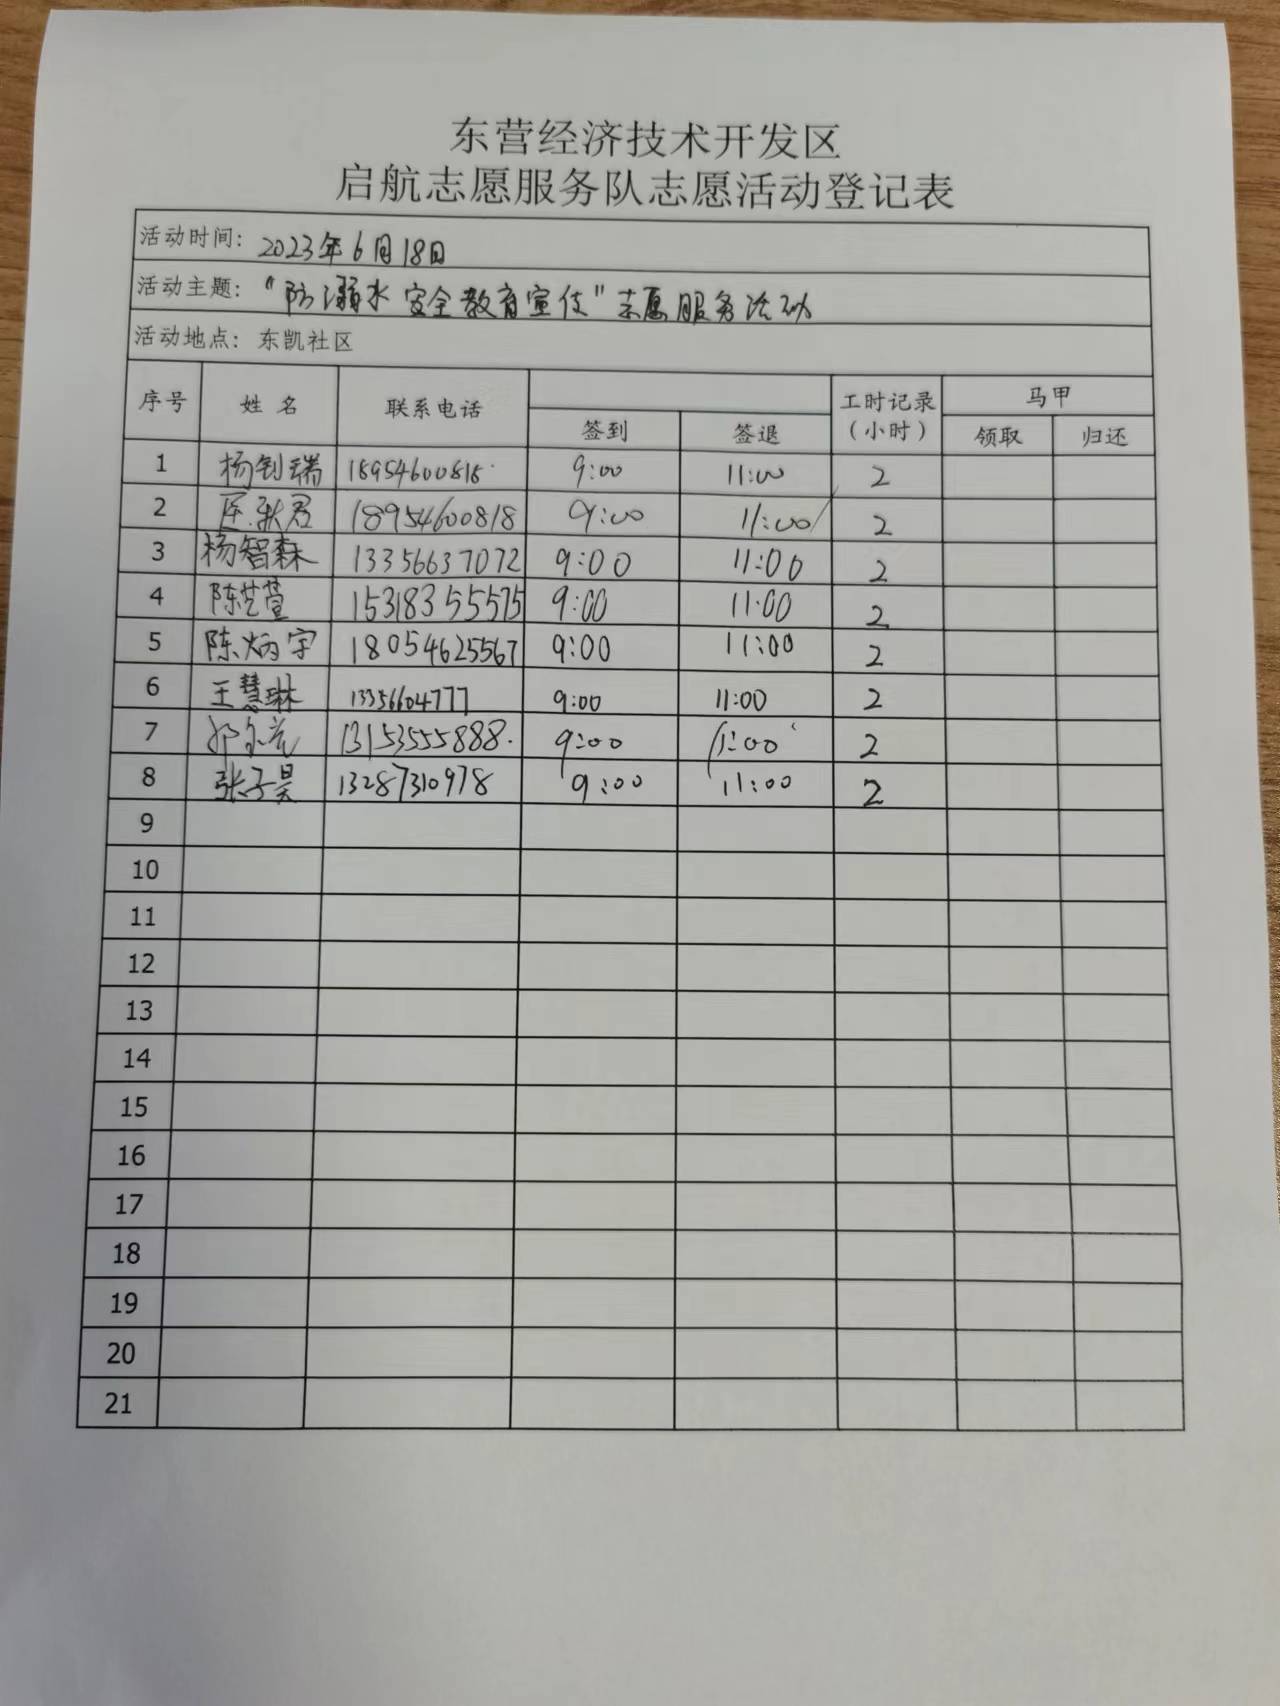 东营经济技术开发区
启航志愿服务队志愿活动登记表
活动时间: 2023年6月18日
活动主题: "防溺水安全教育宣传"志愿服务活动
活动地点: 东凯社区
序号 姓名 联系电话 签到 签退 工时记录(小时) 马甲 领取 归还
1 杨钊瑞 18954600818 9:00 11:00 2
2 18954600818 9:00 11:00 2
3 杨智森 13356637072 9:00 11:00 2
4 陈艺萱 15318355575 9:00 11:00 2
5 陈炳宇 18054625567 9:00 11:00 2
6 王慧琳 13356604777 9:00 11:00 2
7 13153555888 9:00 11:00 2
8 张子昊 13287310978 9:00 11:00 2
9
10
11
12
13
14
15
16
17
18
19
20
21